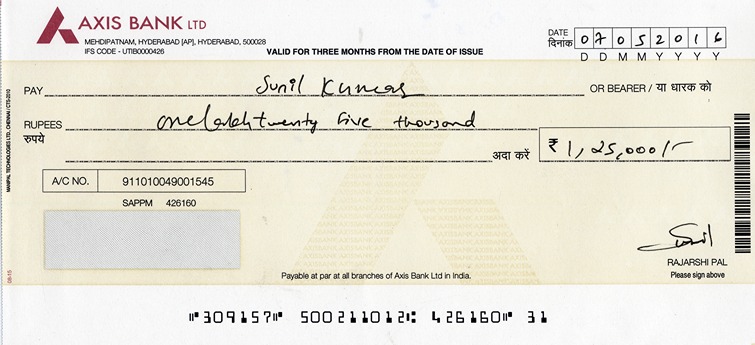 AXIS BANK LTD
MEHDIPATNAM, HYDERABAD [AP], HYDERABAD, 500028
IFS CODE - UTIB0000426
VALID FOR THREE MONTHS FROM THE DATE OF ISSUE
DATE
दिनांक
07052016
D D M M Y Y Y Y
PAY Sunil Kumar OR BEARER / या धारक को
RUPEES one lakh twenty five thousand
रुपये
अदा करें ₹ 1,25,000/-
A/C NO. 911010049001545
SAPPM 426160
RAJARSHI PAL
Please sign above
Payable at par at all branches of Axis Bank Ltd in India.
MANIPAL TECHNOLOGIES LTD. CHENNAI, CTS-2010
08-15
⑈309157⑈ 500211012⑆ 426160⑈ 31